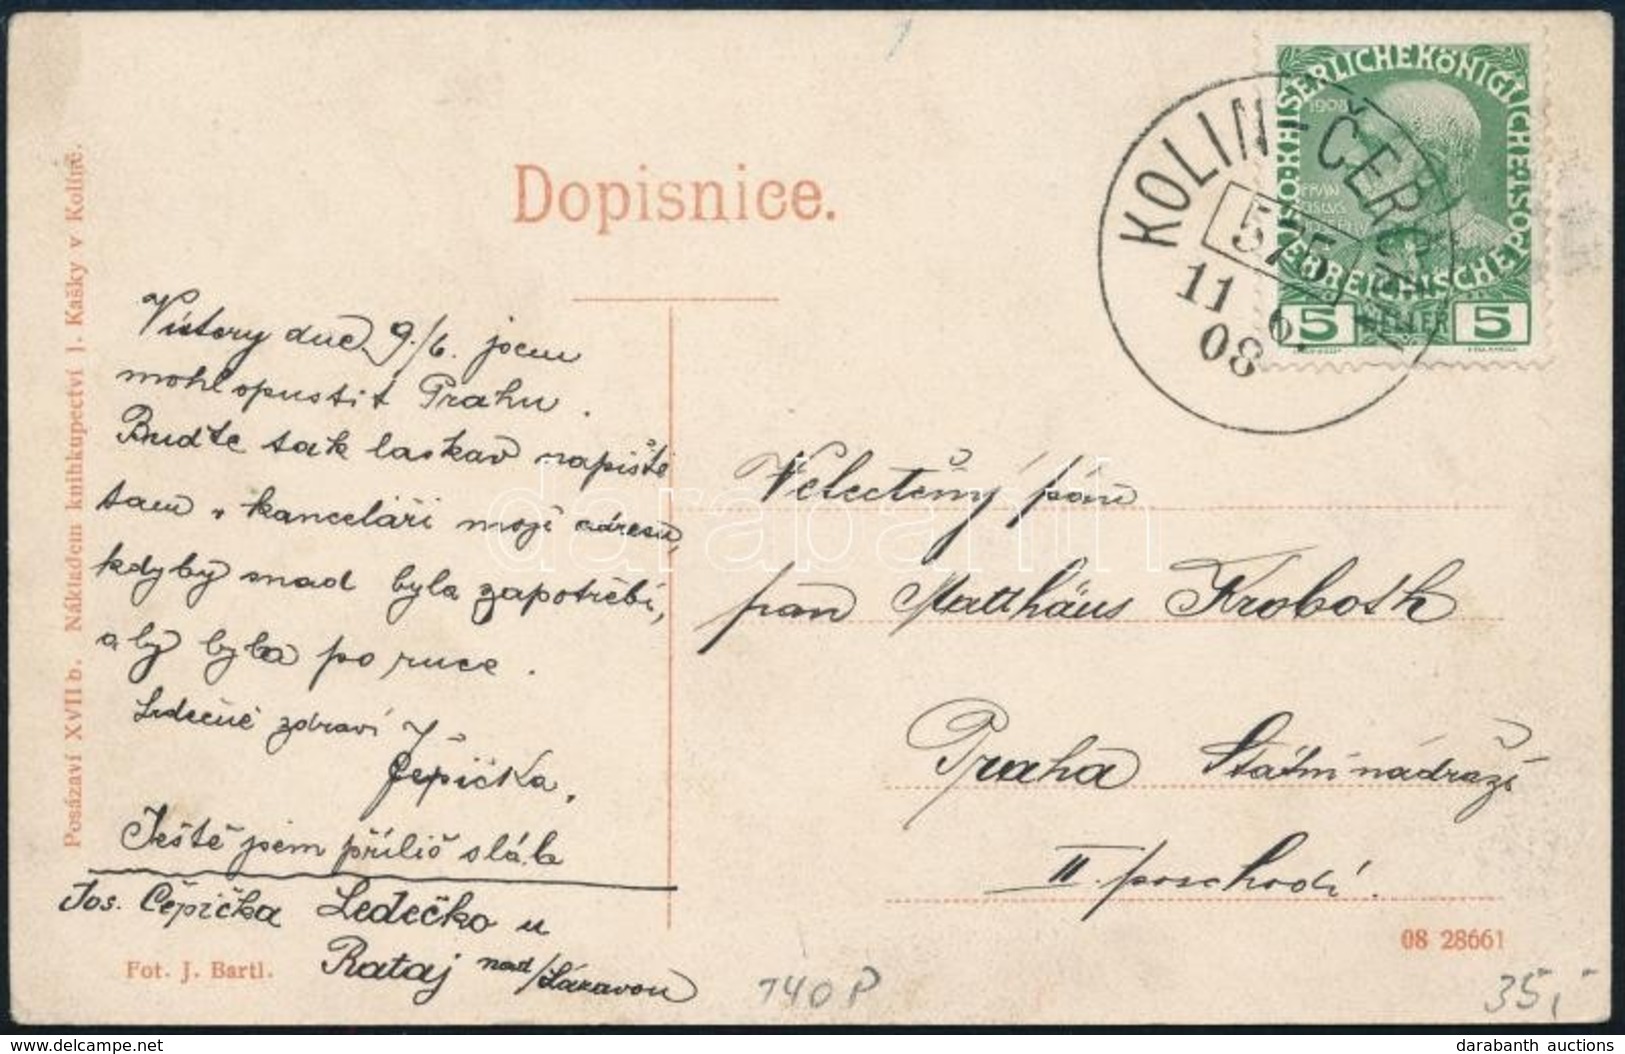 Dopisnice.
KOLIN - ČERČAN
575
11 6.
08
KAISERLICHE KÖNIGLICHE ÖSTERREICHISCHE POST
1908
FRAN
5 HELLER 5
dne 9./6. jsem
mohl opustit Prahu.
Buďte tak laskav napište
tam v kanceláři mogi adresu,
kdyby snad byla zapotřebí,
aby byla po ruce.
Srdečně zdraví J
Čepička.
Ještě jsem příliš sláb
Jos. Čepička Ledečko u
Rataj nad/Sázavou
Velectěný pán
pan Matthäus Kroboth
Praha Státní nádraží
II. poschodí.
Posázaví XVII b. Nákladem knihkupectví J. Kašky v Kolíně.
Fot. J. Bartl.
08 28661
T40P
35,-
darabanth
delcampe.net
darabanth auctions